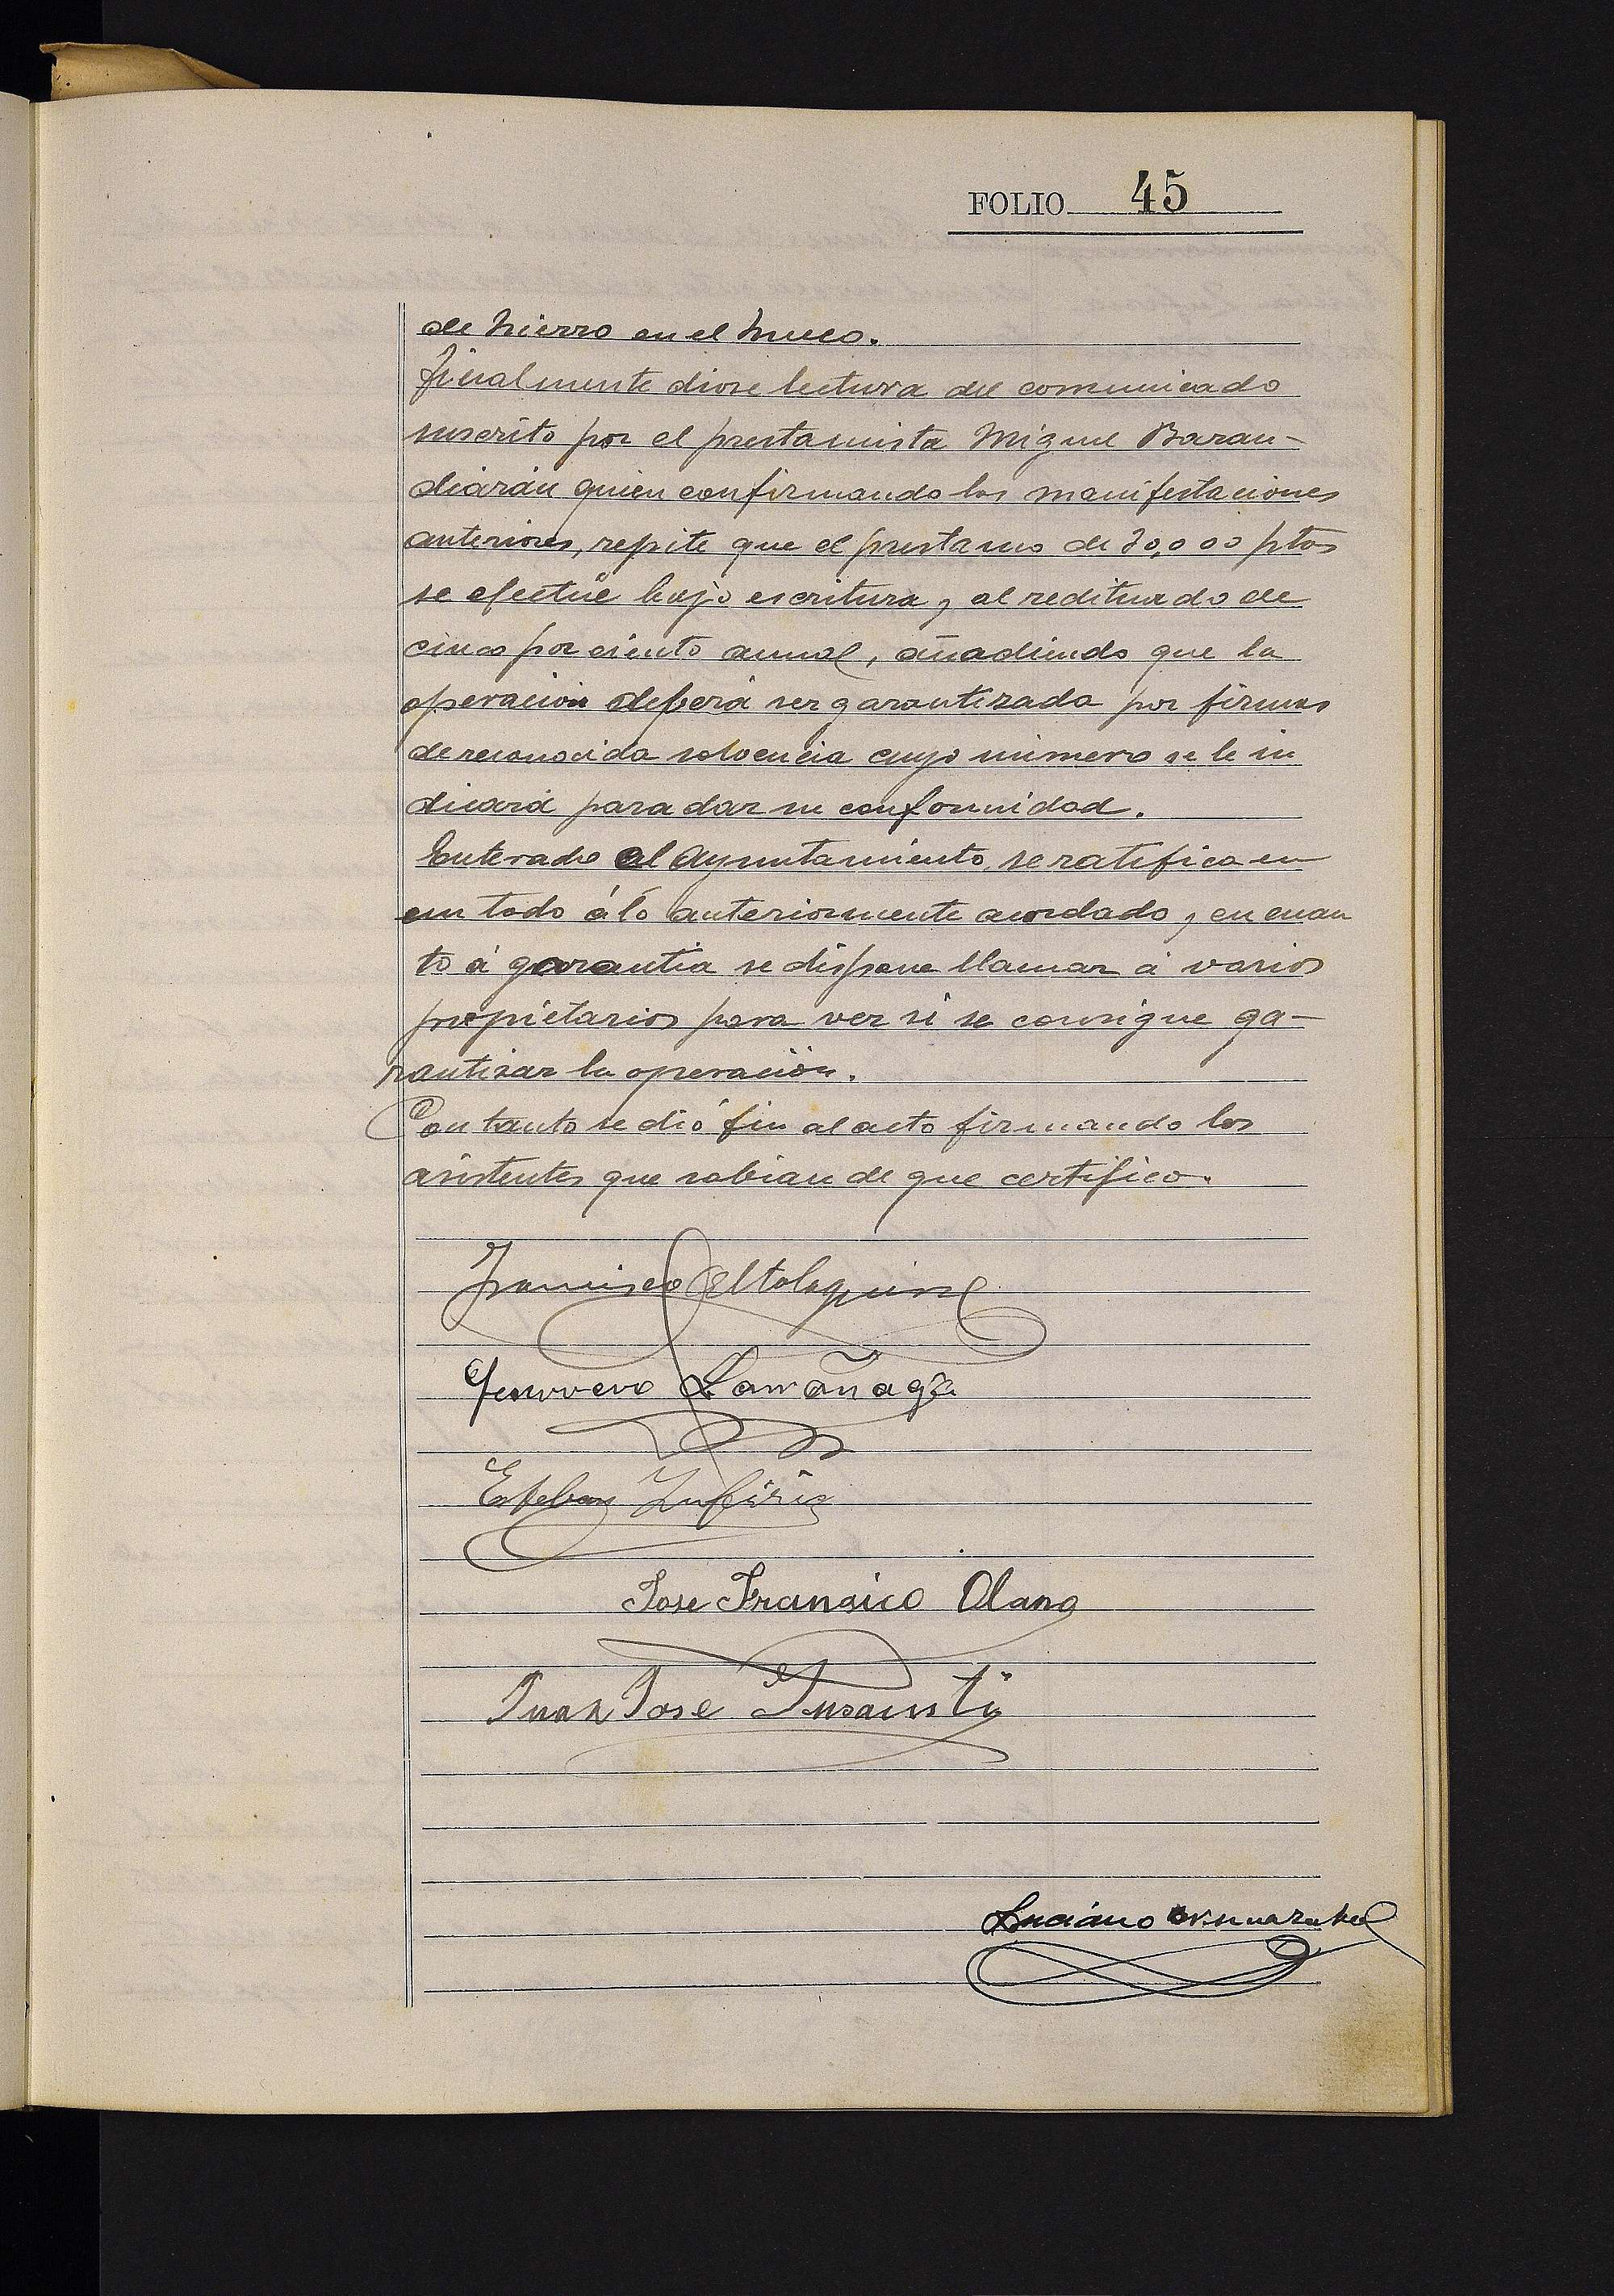 FOLIO 45
de hierro en el hueco.
Finalmente diose lectura del comunicado
suscrito por el prestamista Miguel Baran-
diarán quien confirmando las manifestaciones
anteriores, repite que el prestamo de 30,000 ptas
se efectúe bajo escritura, al redituado de
cinco por ciento anual, añadiendo que la
operación deberá ser garantizada por firmas
de reconocida solvencia cuyo número se le in
dicará para dar su conformidad.
Enterado el Ayuntamiento, se ratifica en
en todo á lo anteriormente acordado, en cuan
to á garantia se dispone llamar á varios
propietarios para ver si se consigue ga-
rantizar la operación.
Con tanto se dió fin al acto firmando los
asistentes que sabian de que certifico.
Francisco Altolaguirre
Genaro Larrañaga
Esteban Zufiria
Jose Fransico Olano
Juan Jose Insausti
Luciano